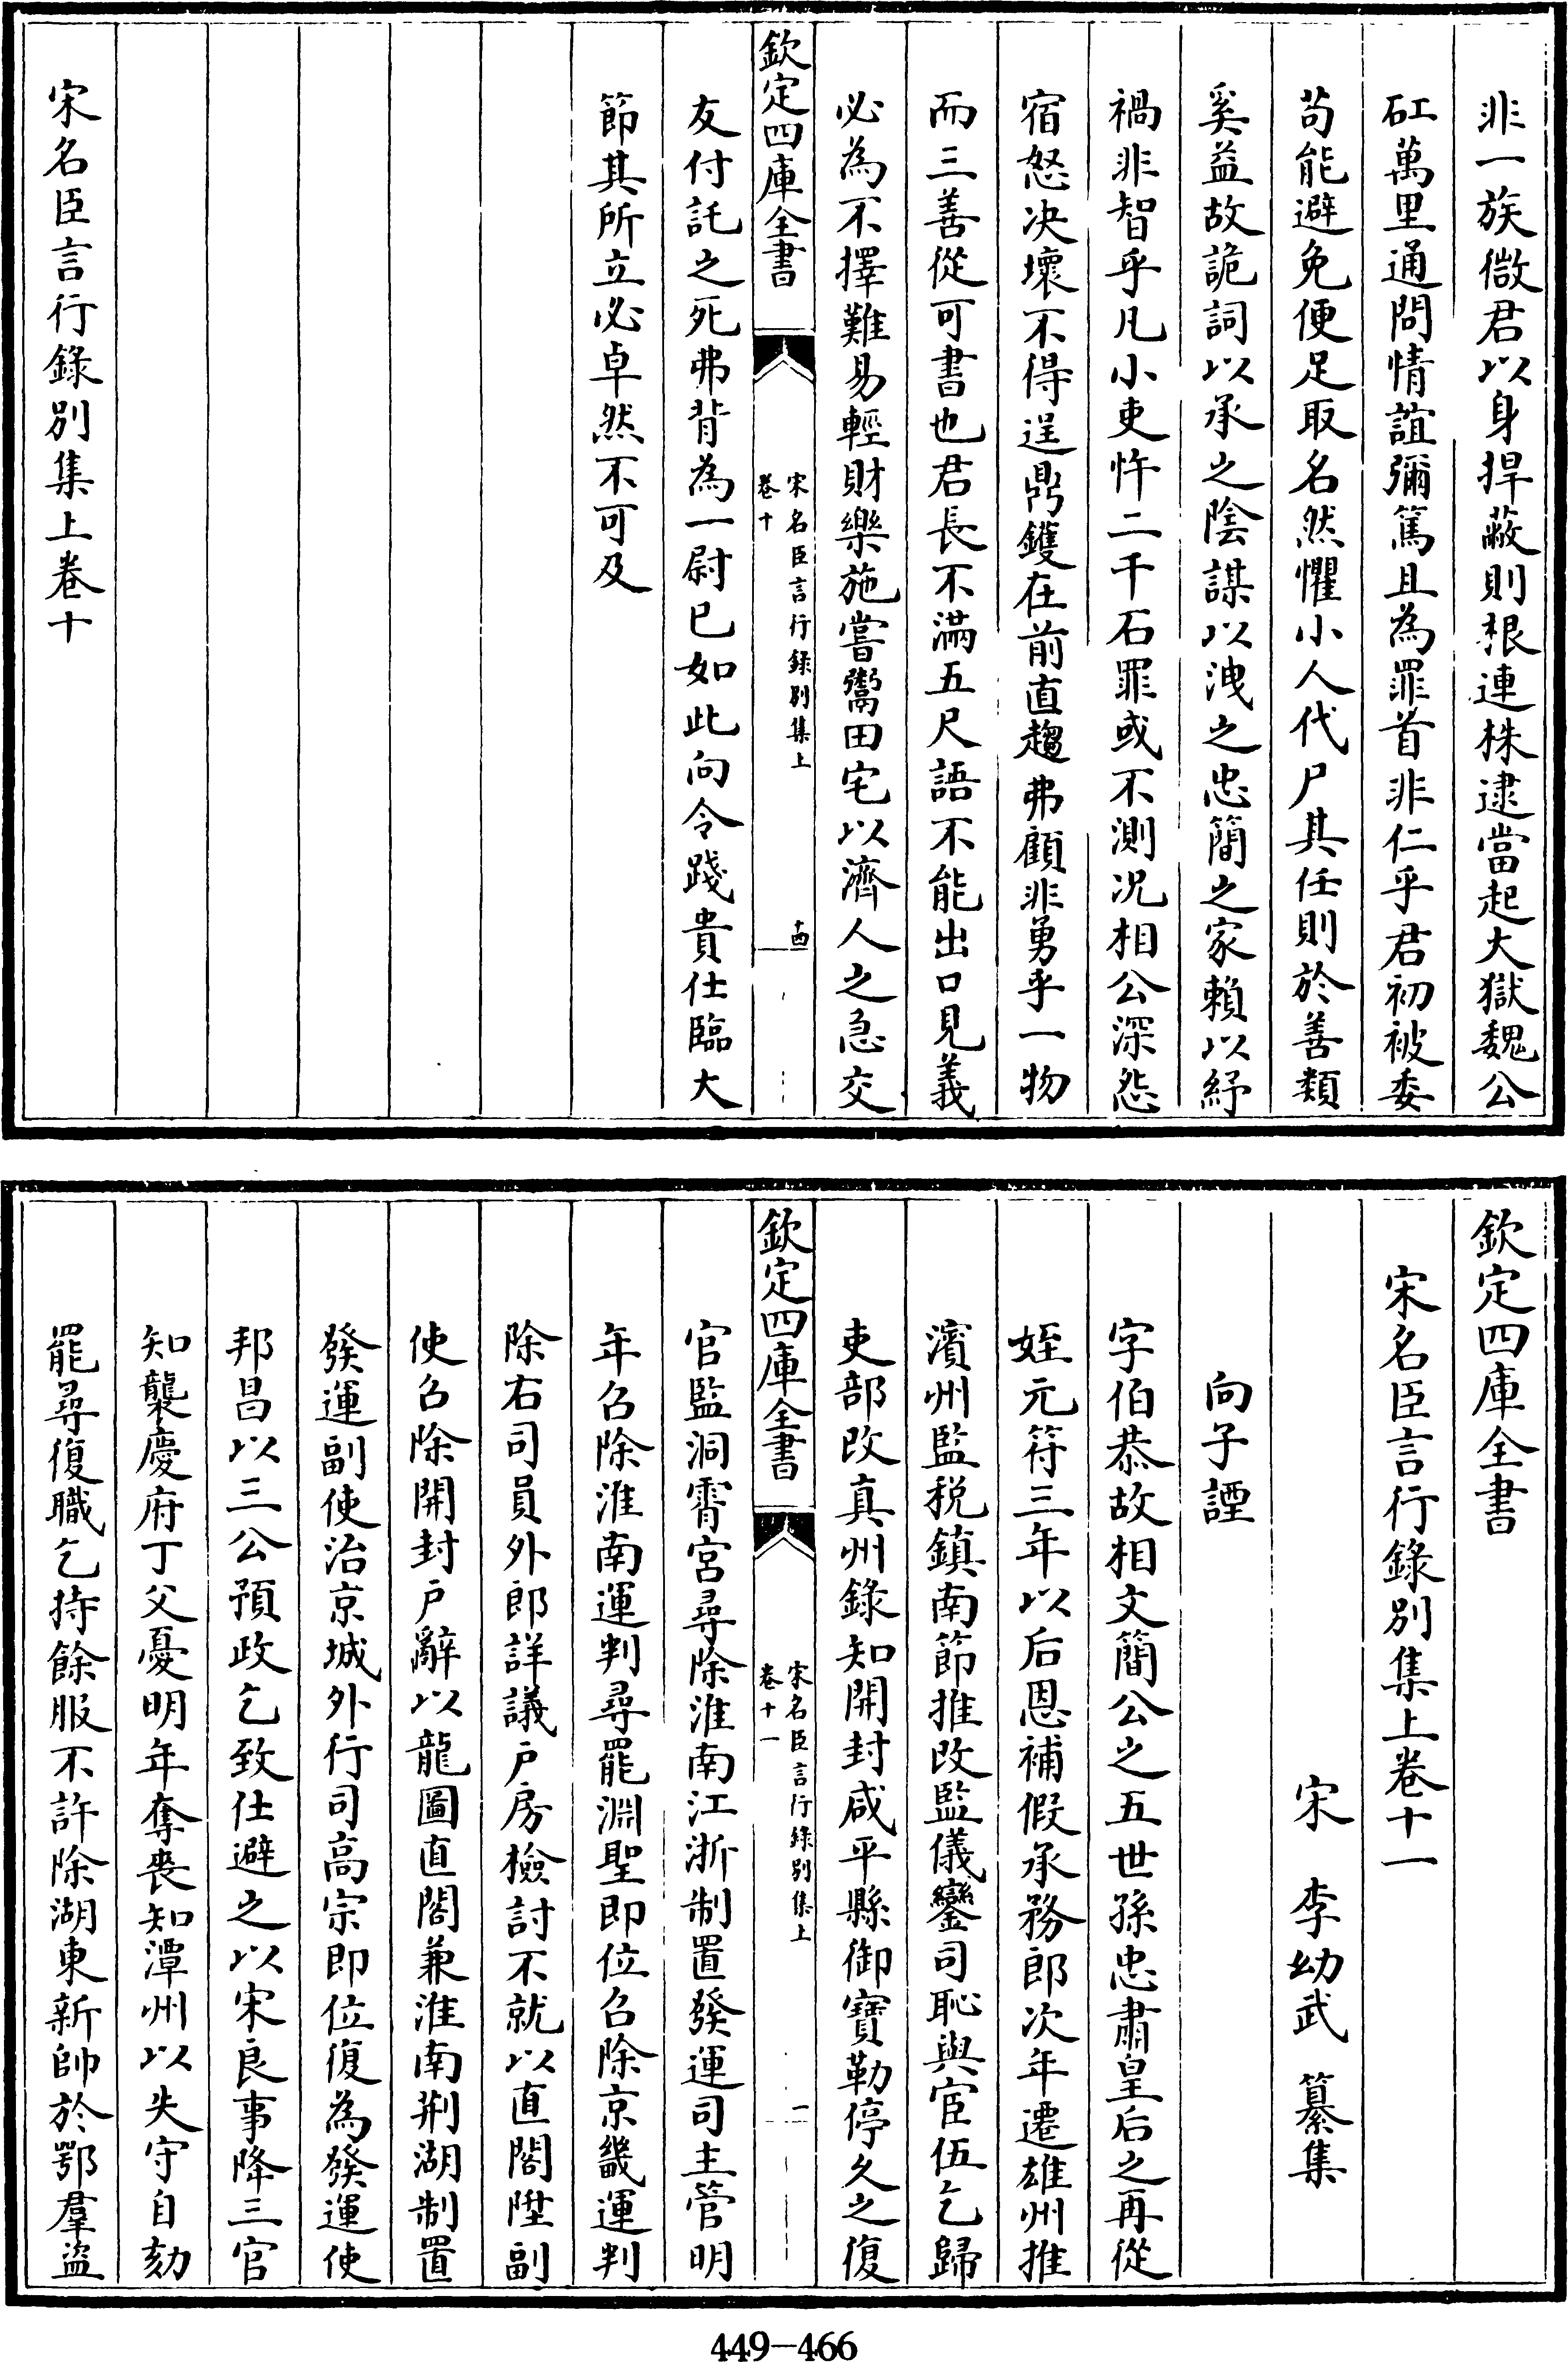 非一族微君以身捍蔽則根連株逮當起大獄魏公
矼萬里通問情誼彌篤且為罪首非仁乎君初被委
苟能避免便足取名然懼小人代尸其任則於善類
奚益故詭詞以承之陰謀以洩之忠簡之家賴以紓
禍非智乎凡小吏忤二千石罪或不測况相公深怨
宿怒决壞不得逞鼎鑊在前直趨弗顧非勇乎一物
而三善從可書也君長不滿五尺語不能出口見義
必為不擇難易輕財樂施嘗鬻田宅以濟人之急交
欽定四庫全書
宋名臣言行録别集上
卷十
十四
友付託之死弗背為一尉已如此向令踐貴仕臨大
節其所立必卓然不可及
宋名臣言行錄别集上卷十
欽定四庫全書
宋名臣言行錄别集上卷十一
宋 李幼武 纂集
向子諲
字伯恭故相文簡公之五世孫忠肅皇后之再從
姪元符三年以后恩補假承務郎次年遷雄州推
濱州監税鎮南節推改監儀鑾司恥與宦伍乞歸
吏部改真州錄知開封咸平縣御寶勒停久之復
欽定四庫全書
宋名臣言行録别集上
卷十一
一
官監洞霄宮尋除淮南江浙制置發運司主管明
年召除淮南運判尋罷淵聖即位召除京畿運判
除右司員外郎詳議户房檢討不就以直閣陞副
使召除開封户辭以龍圖直閣兼淮南荆湖制置
發運副使治京城外行司高宗即位復為發運使
邦昌以三公預政乞致仕避之以宋良事降三官
知襲慶府丁父憂明年奪喪知潭州以失守自劾
罷尋復職乞持餘服不許除湖東新帥於鄂羣盜
449-466